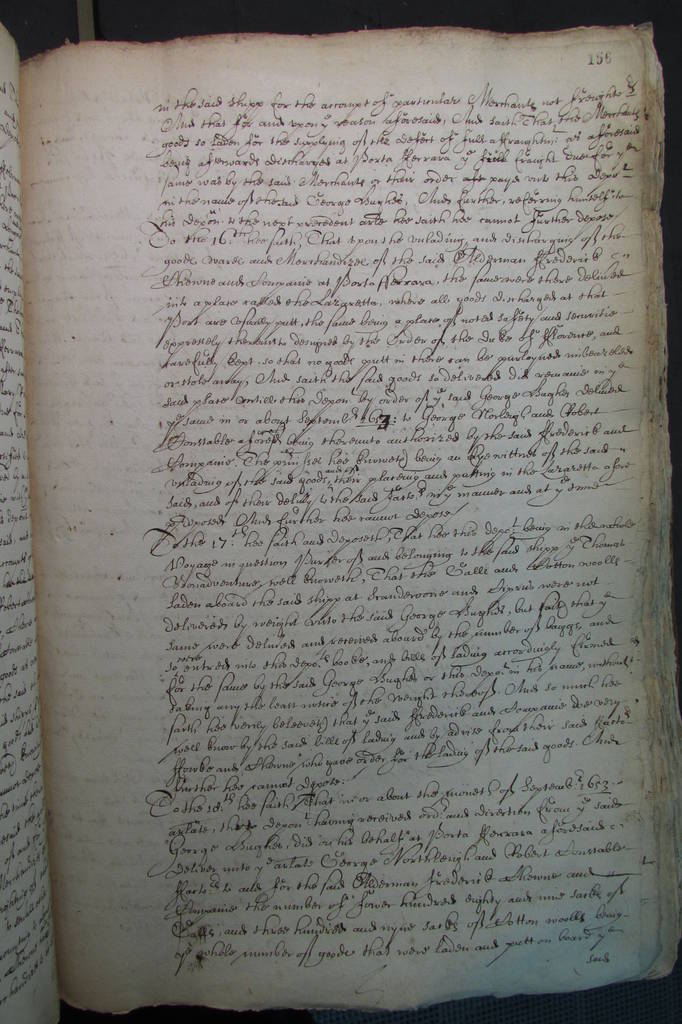 156
in the said shipp for the accompt of particular Merchants not freighters
And that for and upon ye reason aforesaid, And saith That the Merchants
goods so laden for the supplying of the defect of full affraightmt as aforesaid
being afterwards discharged at Porta Ferrara ye full fraight due for ye
same was by the said Merchants or their order payd unto this Depot
in the name of the said George Hughes, And further, referring himselfe to
his depon to the next precedent arle hee saith hee cannot further depose
To the 16th hee saith, That upon the unlading and discharging of the
goods wares and Merchandizes of the said Alderman Frederick
and Companie at Porta Ferrara, the same were there delivered
into a place called the Lazaretta, where all goods discharged at that
Port are usually putt, the same being a place of noted safety and securitie
expressely thereunto designed by the Order of the Duke of Florence, and
carefully kept so that no goods putt in there can be purloyned imbeazeled
or stole away, And saith the said goods so delivered did remaine in ye
said place untill this Depont by order of ye said George Hughes delivered
ye same in or about September 1653: to George Norleigh and Robert
Constable aforesd being thereunto authorized by the said Frederick and
Companie, The premisses hee knoweth being an Eye witnes of the said
unlading of the said goods, and of their placeing and putting in the Lazaretta afore
said, and of their delivery to the said factors in ye manner and at ye time
deposed And further hee cannot depose
To the 17th hee saith and deposeth, That hee this depot being in the whole
Voyage in question Purser of and belonging to the said shipp ye Thomas
Bonadventure, well knoweth, That the Galls and Cotton woolls
laden aboard the said shipp at Scanderoone and Ciprus were not
delivered by weight unto the said George Hughes, but saith that ye
same were delivered and received aboard by the number of baggs, and
so were entred into this depots booke, and bills of lading accordingly firmed
for the same by the said George Hughes or this depot in his name, without
taking any the least notice of the weight thereof. And so much hee
saith, hee verily beleeveth that ye said Frederick and Companie doe very
well know by the said bills of lading and by advise from their said factors
and who gave order for the lading of the said goods. And
further hee cannot depose.
To the 18th hee saith That in or about the moneth of Septembr 1653
arlate, this Depont having received order and direction from ye said
George Hughes, did on his behalf at Porta Ferrara aforesaid
deliver unto ye arlate George Northleigh and Robert Constable
Factors to and for the said Alderman Frederick and
Companie the number of fower hundred eighty and nine sacks of
Galls, and three hundred and nyne sacks of Cotton woolls being
ye whole number of goods that were laden and putt on board ye
said